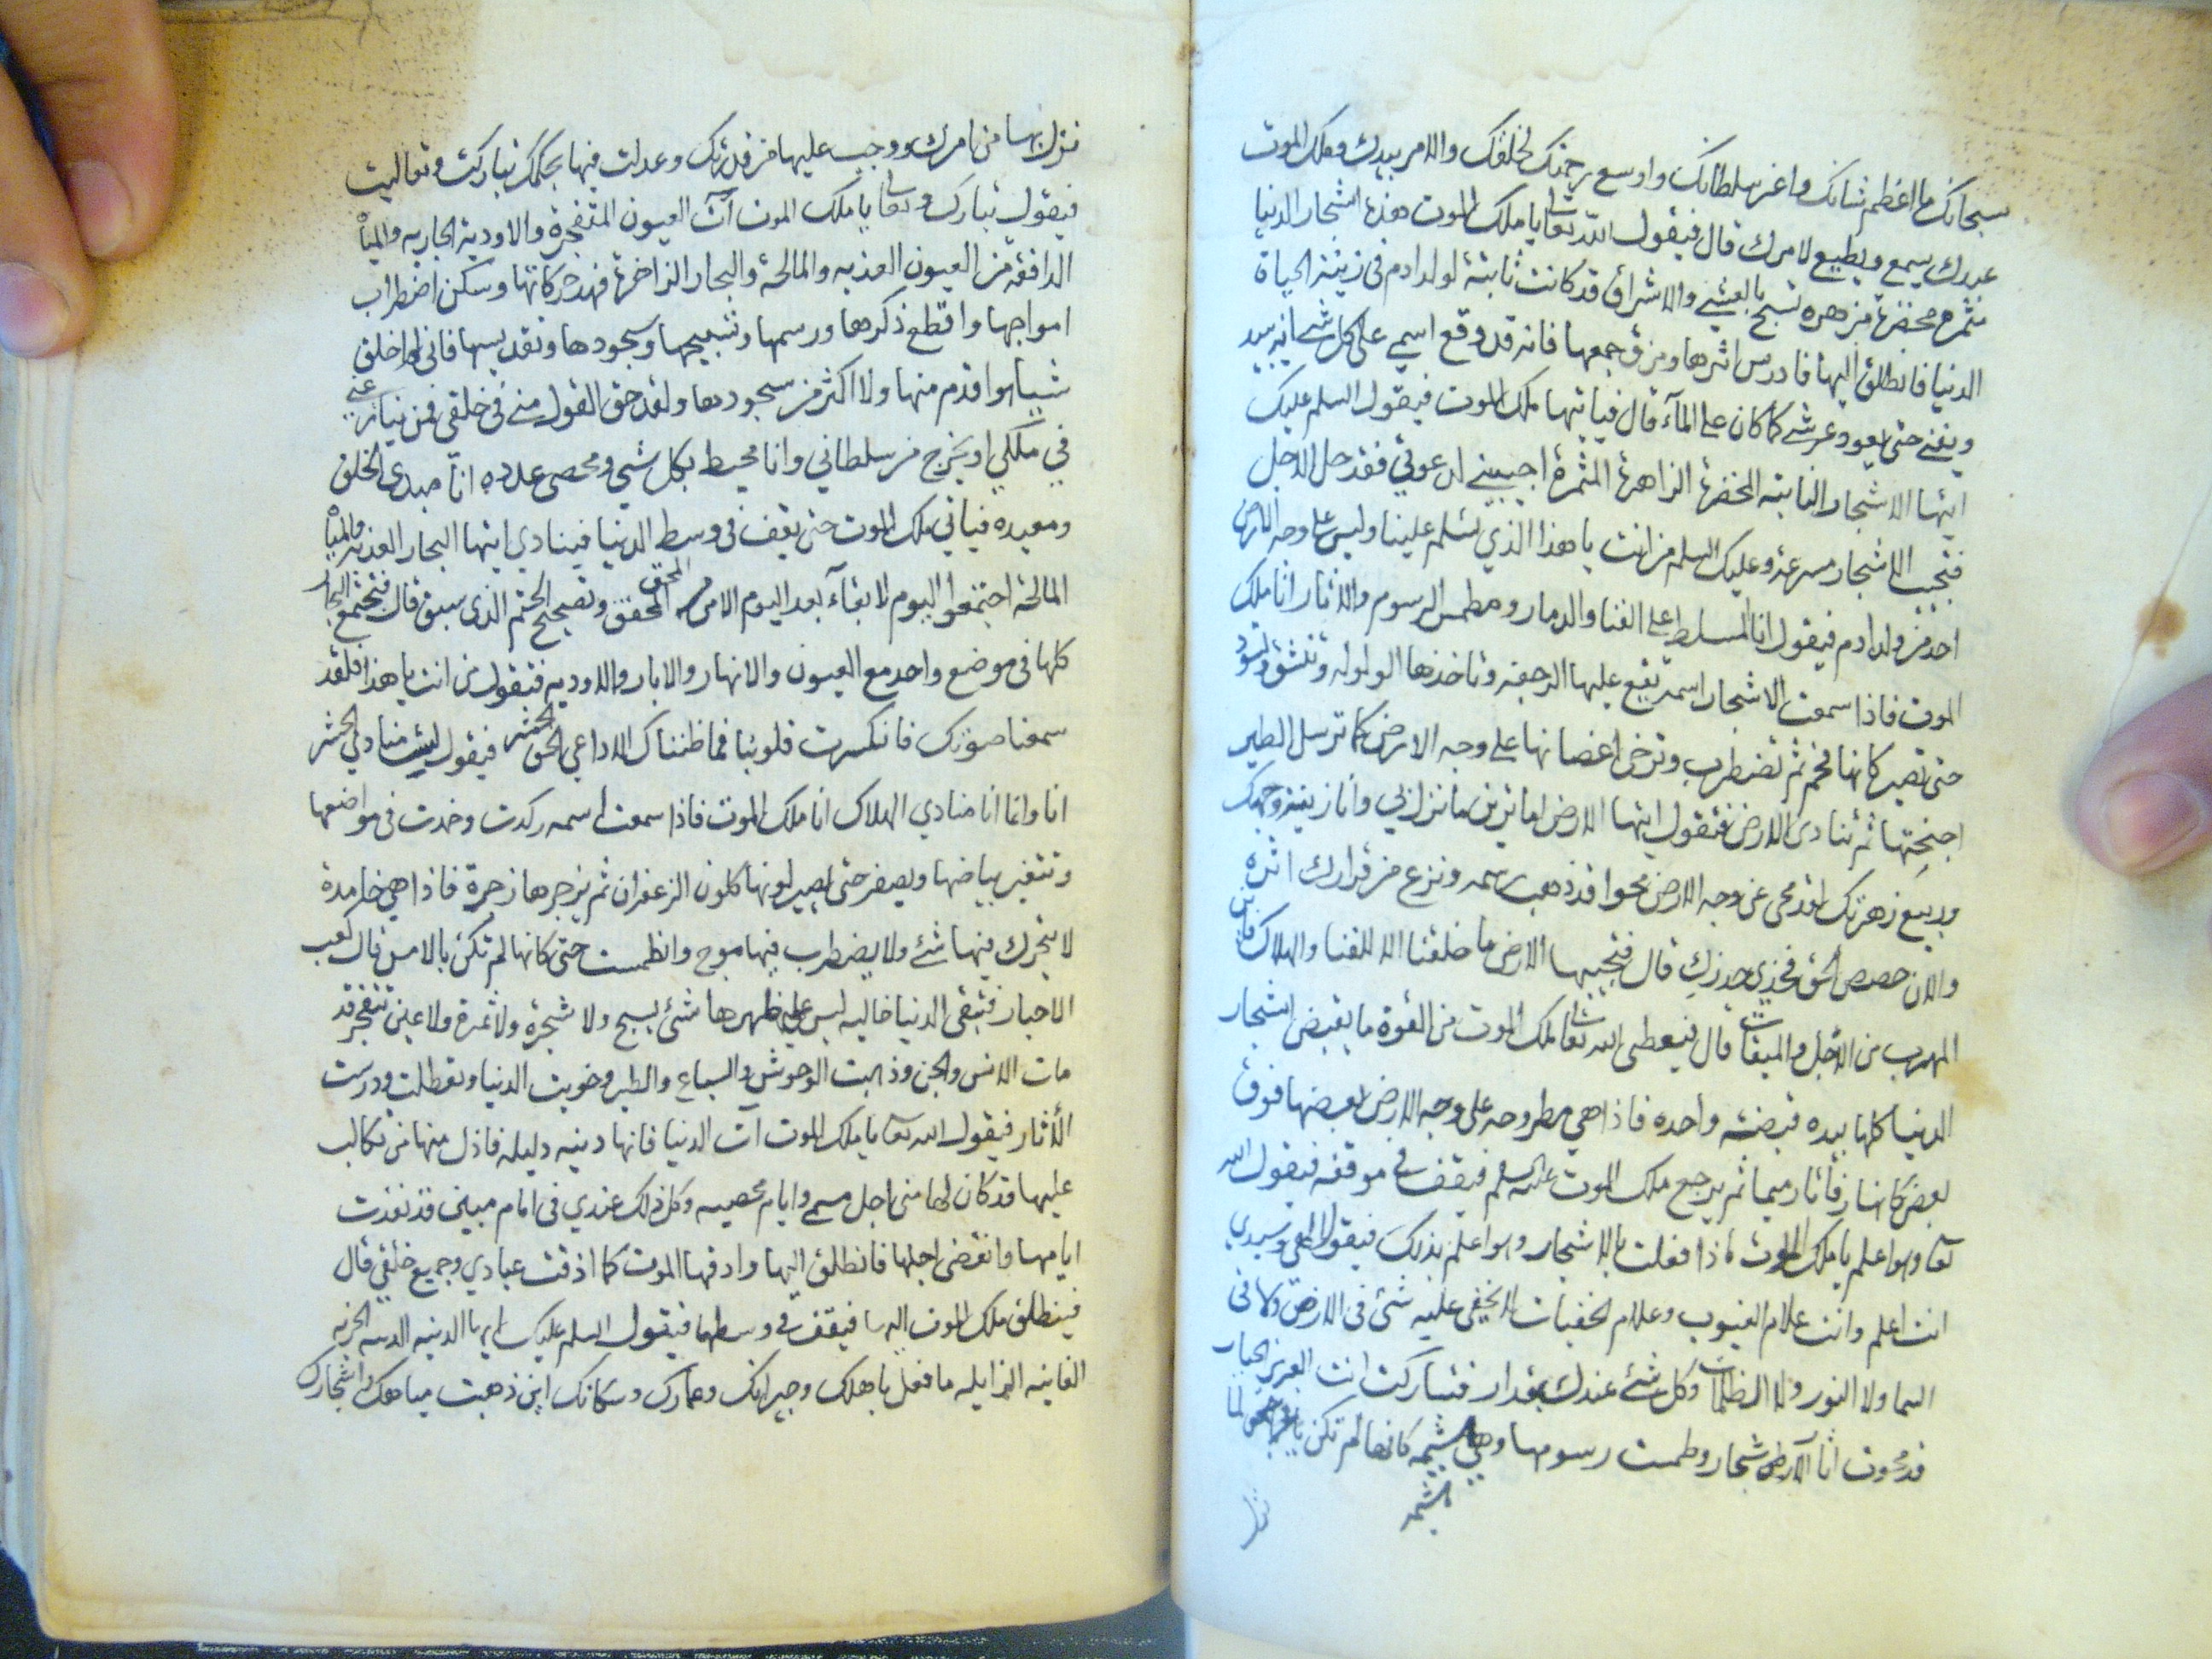 سبحانك ما اعظم شانك واعز سلطانك واوسع رحمتك لخلقك والامر بيدك وملك الموت
عبدك يسمع ويطيع لامرك قال فيقول الله تعالى يا ملك الموت هذه اشجار الدنيا
مثمرة مخضرة مزهره تسبح بالعشي والاشراق قد كانت ثابتة لولد ادم في زينة الحياة
الدنيا فانطلق اليها فادرس اثرها ومزق جمعها فانه قد وقع اسمي على كل شي انه يبيد
ويفنى حتى يعود عرشي كما كان على المآء قال فياتيها ملك الموت فيقول السلم عليك
ايتها الاشجار النابته المخضرة الزاهرة المثمرة اجيبيني لدعوتي فقد حل الاجل
فتجيب الاشجار مسرعة وعليك السلم من انت يا هذا الذي تسلم علينا وليس على وجه الارض
احد من ولد ادم فيقول انا المسلط على الفنا والدمار ومطمس الرسوم والاثار انا ملك
الموت فاذا سمعت الاشجار اسمه تقع عليها الرجفة وتاخذها الولوله وتنشق وتسود
حتى تصير كانها فحم ثم تضطرب وترخي اغصانها على وجه الارض كما ترسل الطير
اجنحتها ثم تنادى الارض فتقول ايتها الارض اما ترين ما نزل بي وانا زينة وجهك
وربيع زهرتك لقد محى عن وجه الارض محوا قد ذهب رسمه ونزع من قرارك اثره
والان حصحص الحق فخذي حذرك قال فتجيبها الارض ما خلقنا الا للفنا والهلاك فاين
المهرب من الاجل والميقات قال فيعطى الله تعالى ملك الموت من القوة ما يقبض اشجار
الدنيا كلها بيده قبضة واحده فاذا هي مطروحه على وجه الارض بعضها فوق
بعض كانها رفاتا رميما ثم يرجع ملك الموت عليه السلم فيقف في موقفه فيقول الله
تعا وهو اعلم يا ملك الموت ماذا فعلت بالاشجار وهو اعلم بذلك فيقول الهي وسيدي
انت اعلم وانت علام الغيوب وعلام الخفيات لا يخفى عليه شئ في الارض ولا في
السما ولا النور ولا الظلمات وكل شئ عندك بمقدار فتباركت انت العزيز الجبار
قد محوت اثار الاشجار وطمست رسومها وهي هشيمه كانها لم تكن لما
هشيمه
نزل بها من امرك ووجب عليها من قدرتك وعدلت فيها بحكمك تباركت وتعاليت
فيقول تبارك وتعالى يا ملك الموت آت العيون المتفجرة والاودية الجاريه والمياه
الدافقة من العيون العذبه والمالحة والبحار الزاخرة فهد حركاتها وسكن اضطراب
امواجها واقطع ذكرها ورسمها وتسبيحها وسجودها وتقديسها فاني لم اخلق
شيا هو اقدم منها ولا اكثر من سجودها ولقد حق القول مني في خلقي فمن ينازعني
في ملكي او يخرج من سلطاني وانا محيط بكل شي ومحصى عدده انا مبدى الخلق
ومعيده فياتي ملك الموت حتى يقف في وسط الدنيا فينادي ايتها البحار العذبه والمياه
المالحة اجتمعوا اليوم لا بقآء بعد اليوم الامر المحقق وتصحيح الحتم الذى سبق قال فتجتمع البحار
كلها في موضع واحد مع العيون والانهار والابار والاوديه فتقول من انت يا هذا فلقد
سمعنا صوتك فانكسرت قلوبنا فما ظنناك الا داعي الحق للحشر فيقول ليس منادي الحشر
انا وانما انا منادي الهلاك انا ملك الموت فاذا سمعت اسمه ركدت وخمدت في مواضعها
وتتغير بياضها ويصفر حتى يصير لونها كلون الزعفران ثم يزجرها زجرة فاذا هي خامدة
لا يتحرك فيها شئ ولا يضطرب فيها موج وانطمست حتى كانها لم تكن بالامس قال كعب
الاحبار فتبقى الدنيا خاليه ليس على ظهرها شئ يسبح ولا شجرة ولا ثمرة ولا عين تتفجر قد
مات الانس والجن وذهبت الوحوش والسباع والطير وخويت الدنيا وتعطلت ودرست
الأثار فيقول الله تعا يا ملك الموت آت الدنيا فانها دنيه ذليله فاذل منها من تكالب
عليها قد كان لها مني اجل مسمى وايام محصيه وكل ذلك عندي في امام مبين قد نفذت
ايامها وانقضى اجلها فانطلق اليها واذقها الموت كما اذقت عبادي وجميع خلقي قال
فينطلق ملك الموت اليها فيقف في وسطها فيقول السلم عليك ايتها الدنيه
الفانيه الزايله ما فعل باهلك وجيرانك وعمارك وسكانك اين ذهبت مياهك واشجارك